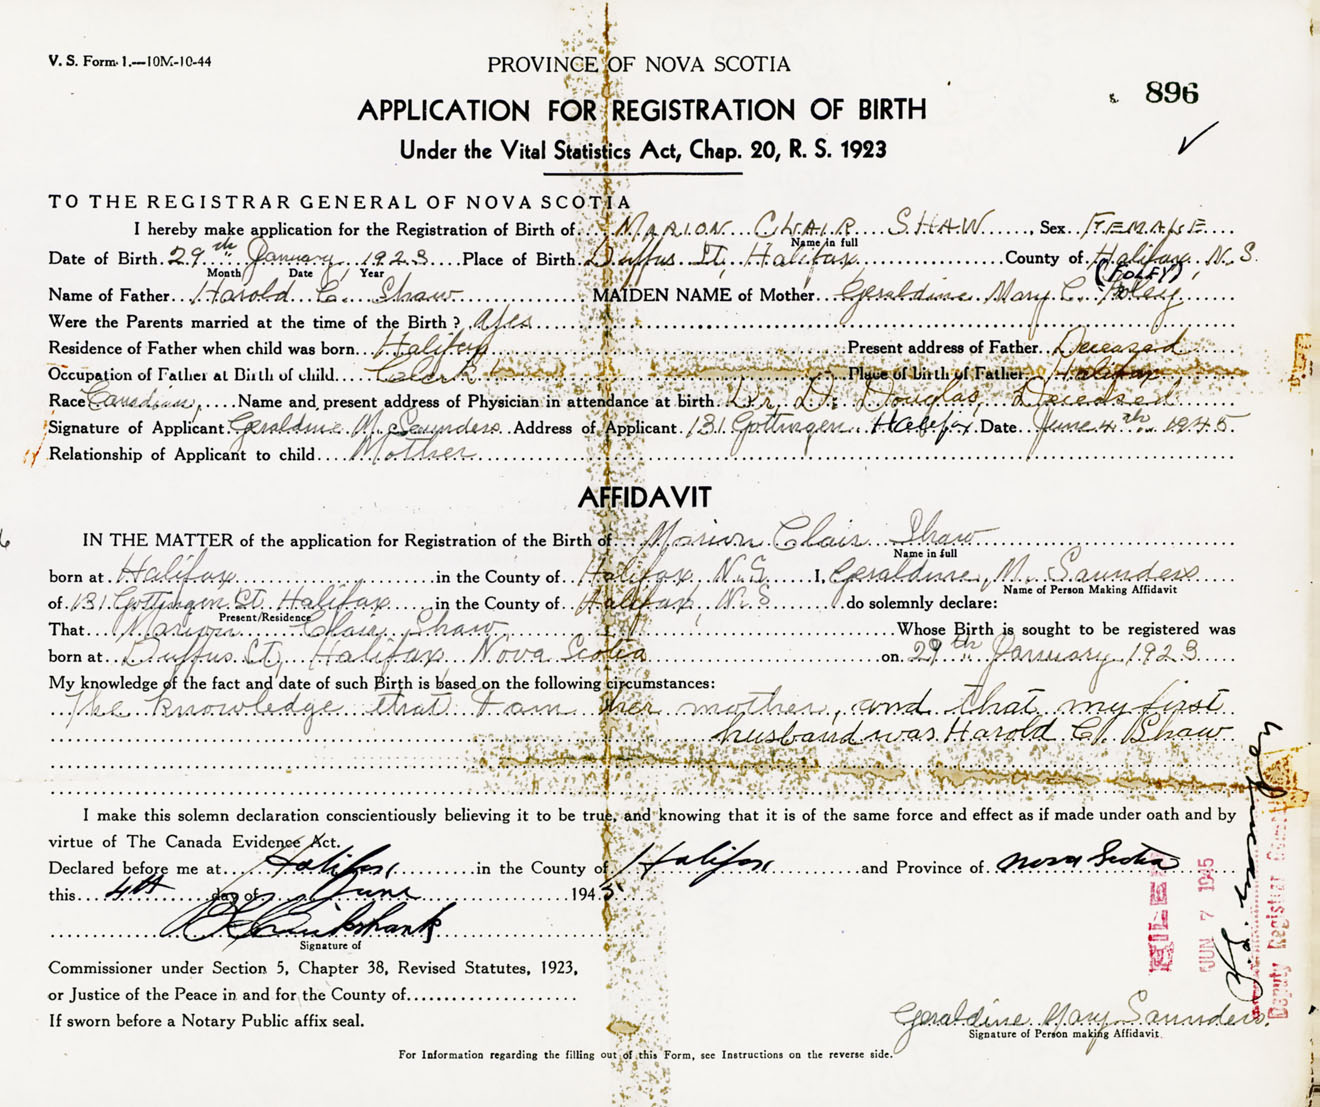 V. S. Form 1.—10M-10-44
PROVINCE OF NOVA SCOTIA
896
APPLICATION FOR REGISTRATION OF BIRTH
Under the Vital Statistics Act, Chap. 20, R. S. 1923
TO THE REGISTRAR GENERAL OF NOVA SCOTIA
I hereby make application for the Registration of Birth of MARION CLAIR SHAW, Sex FEMALE
Name in full
Date of Birth 29th January 1923 Place of Birth Duffus St, Halifax County of Halifax, N.S.
Month Date Year
(FOLEY)
Name of Father Harold C. Shaw MAIDEN NAME of Mother Geraldine Mary C. Foley
Were the Parents married at the time of the Birth? Yes
Residence of Father when child was born Halifax Present address of Father Deceased
Occupation of Father at Birth of child Clerk Place of birth of Father Halifax
Race Canadian, Name and present address of Physician in attendance at birth Dr. D. Douglas, Deceased
Signature of Applicant Geraldine M. Saunders Address of Applicant 131 Gottingen Halifax Date June 4th 1945
Relationship of Applicant to child Mother
AFFIDAVIT
IN THE MATTER of the application for Registration of the Birth of Marion Clair Shaw
Name in full
born at Halifax in the County of Halifax, N.S. I, Geraldine, M. Saunders
Name of Person Making Affidavit
of 131 Gottingen St Halifax in the County of Halifax, N.S do solemnly declare:
Present Residence
That Marion Clair Shaw Whose Birth is sought to be registered was
born at Duffus St, Halifax, Nova Scotia on 29th January 1923
My knowledge of the fact and date of such Birth is based on the following circumstances:
The knowledge that I am her mother, and that my first
husband was Harold C. Shaw
I make this solemn declaration conscientiously believing it to be true, and knowing that it is of the same force and effect as if made under oath and by
virtue of The Canada Evidence Act.
Declared before me at Halifax in the County of Halifax and Province of Nova Scotia
this 4th day of June 1945
Cruikshank
Signature of
Commissioner under Section 5, Chapter 38, Revised Statutes, 1923,
or Justice of the Peace in and for the County of
If sworn before a Notary Public affix seal.
FILED
JUN 7 1945
Deputy Registrar General
Geraldine Mary Saunders.
Signature of Person making Affidavit
For Information regarding the filling out of this Form, see Instructions on the reverse side.